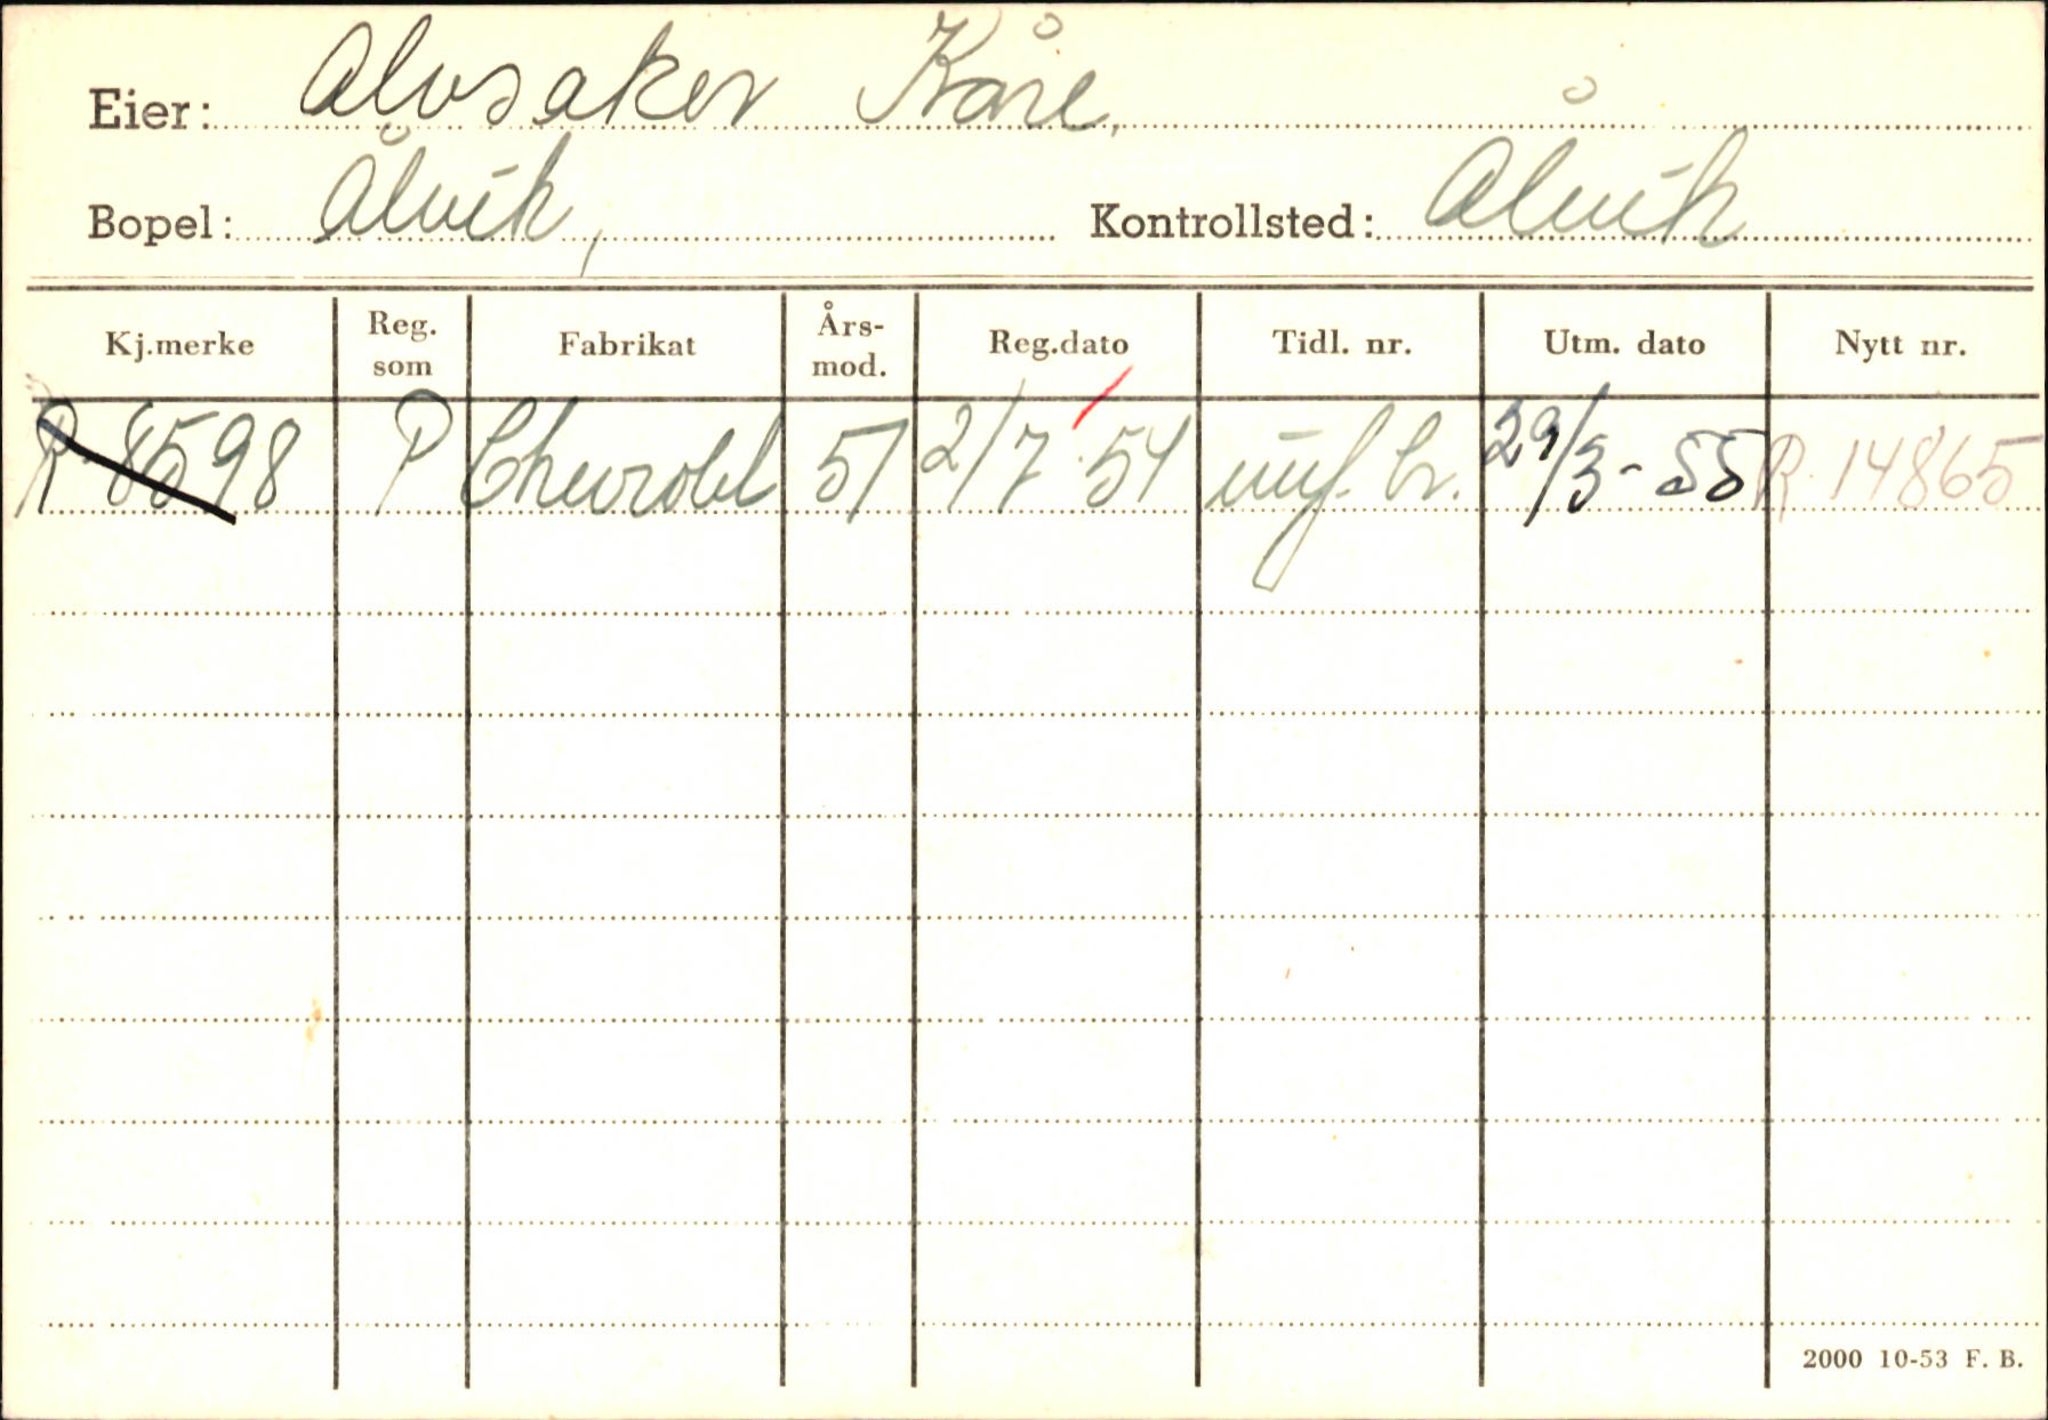 Eier: Alvsaker Kåre,
Bopel: Ålvik, Kontrollsted: Ålvik
Kj.merke Reg. som Fabrikat Års- mod. Reg.dato Tidl. nr. Utm. dato Nytt nr.
R-8598 P Chevrolet 51 2/7-54 29/3-55 R-14865
2000 10-53 F. B.